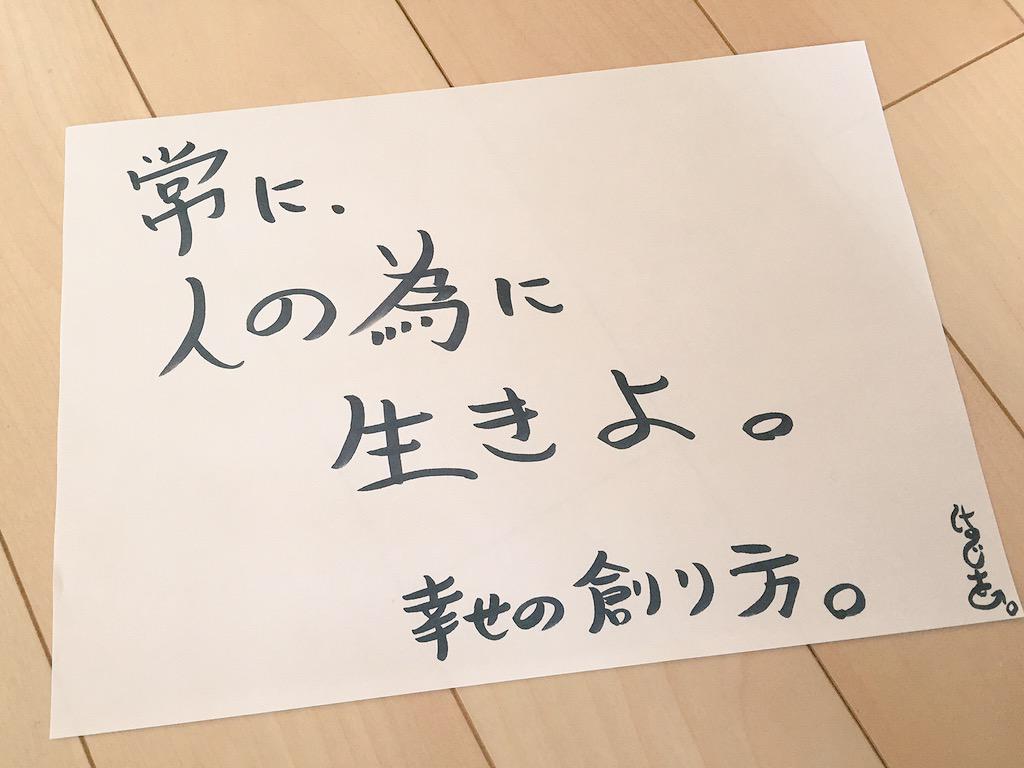 常に.
人の為に
生きよ。
幸せの創り方。